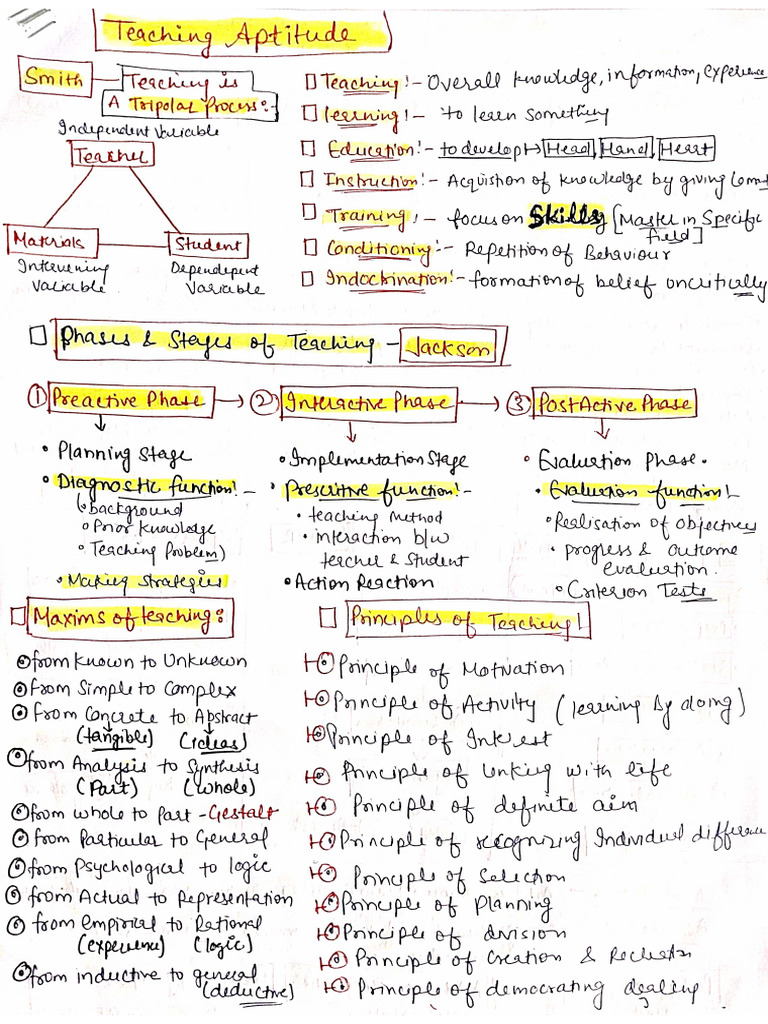 Teaching Aptitude
Smith
Teaching is
A Tripolar Process:-
Independent Variable
Teacher
Materials
Student
Intervening
Variable
Dependepent
Variable
Teaching:- Overall knowledge, information, experience
learning:- to learn something
Education:- to develop → Head, Hand, Heart
Instruction:- Acquistion of knowledge by giving
Training:- focus on Skills [Master in Specific
field]
Conditioning:- Repetition of Behaviour
Indoctrination:- formation of belief uncritically
Phases & Stages of Teaching - Jackson
① Preactive Phase → ② Interactive Phase → ③ PostActive Phase
• Planning Stage
• Diagnostic function:-
background
Prior Knowledge
• Teaching Problem)
• Making Strategies
• Implementation Stage
• Prescritive function:-
• teaching Method
• interaction b/w
teacher & Student
• Action Reaction
• Evaluation Phase.
• Evaluation function!
• Realisation of Objectives
• progress & outcome
evaluation.
• Criterion Tests
Maxims of teaching:
from Known to Unknown
from Simple to Complex
from Concrete to Abstract
(tangible) (ideas)
from Analysis to Synthesis
(Part) (Whole)
from whole to part - Gestalt
from Particular to General
from Psychological to logic
from Actual to Representation
from empirical to Rational
(experience) (logic)
from inductive to general
(deductive)
Principles of Teaching!
Principle of Motivation
Principle of Activity (learning By doing)
Principle of Interest
Principle of linking with life
Principle of definite aim
Principle of recognizing Individual difference
Principle of Selection
Principle of Planning
Principle of division
Principle of Creation &
Principle of democrating dealing